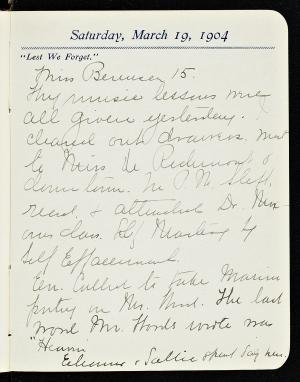 Saturday, March 19, 1904
"Lest We Forget."
Miss Berensen 15.
My music lessons were
all given yesterday. I
cleaned out drawers. Went
to Miss De Richmond &
down town. In P.M. slept,
read, & attended Dr.
class. Mastery by
Self Effacement.
Eve. Called to take Marion
on Mr. The last
word Mr. Words wrote was
"Heaven
Eleanor & Sallie spent day here.